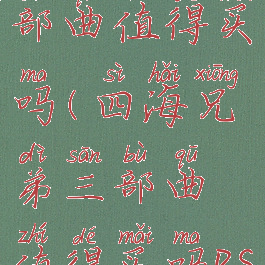 部曲值得买
mǎ sì hǎi xiōng
吗(四海兄
dì sān bù qū
弟三部曲
zhí dé mǎi ma
值得买吗PS